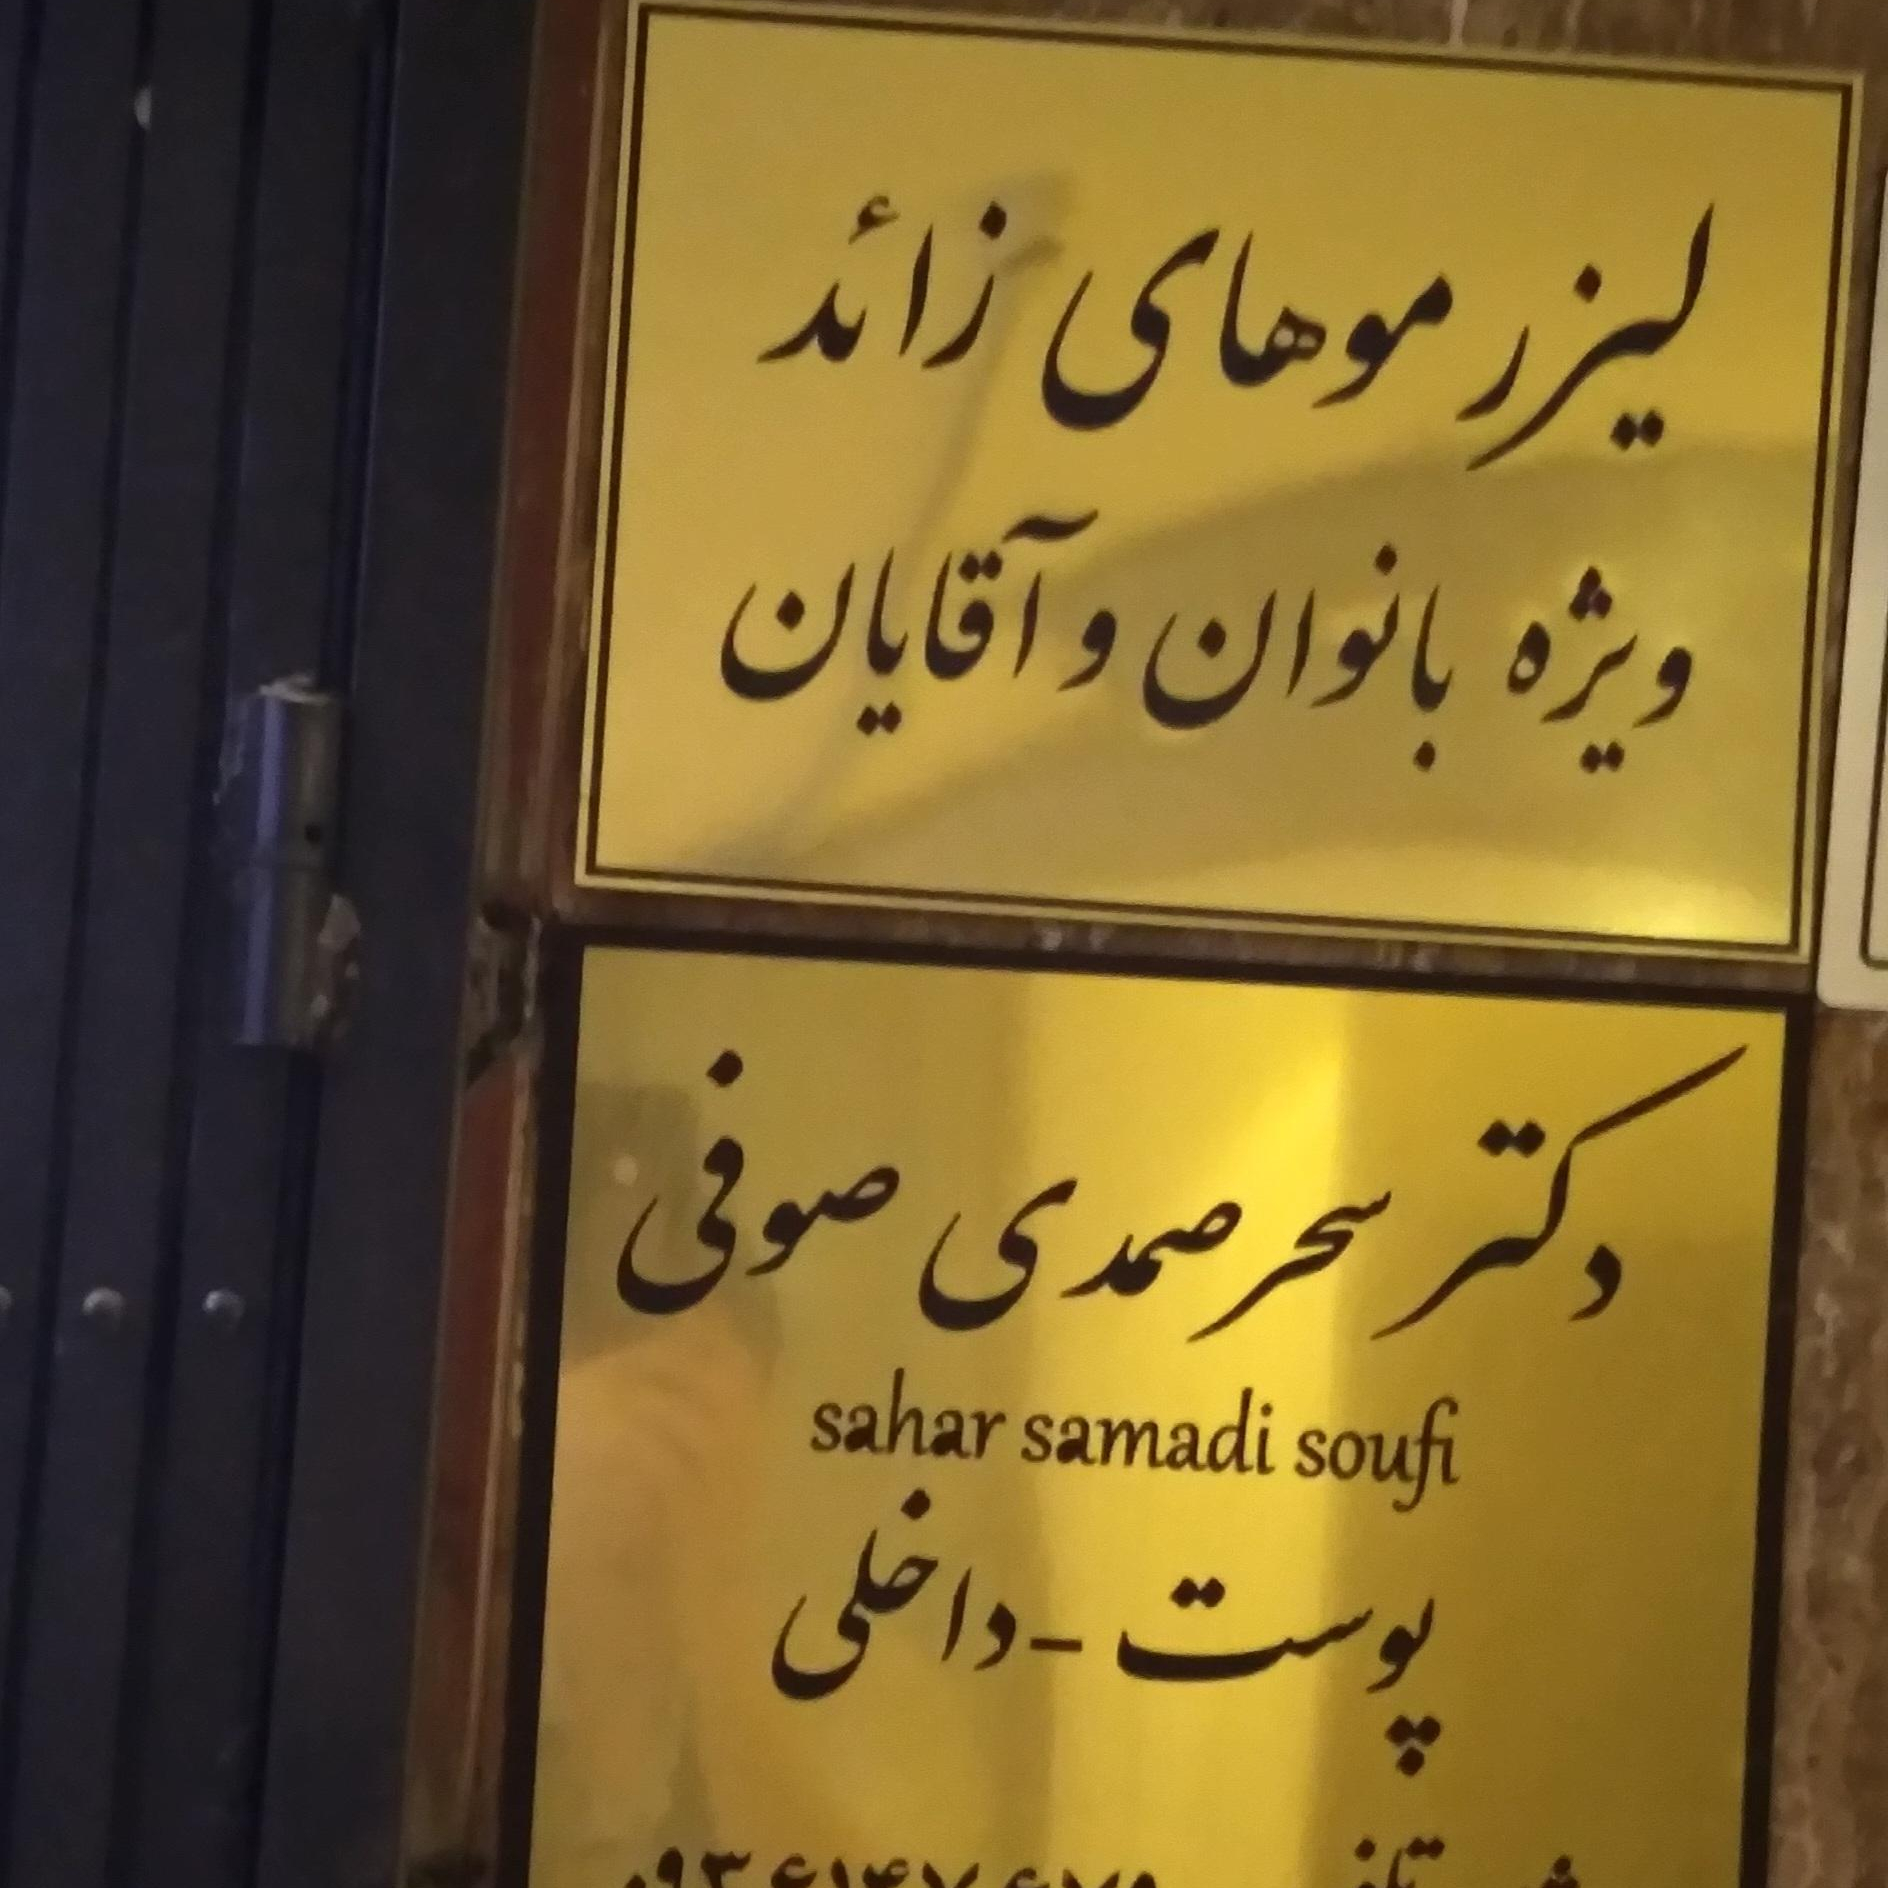 لیزر موهای زائد
ویژه بانوان و آقایان
دکتر سحر صمدی صوفی
sahar samadi soufi
پوست - داخلی